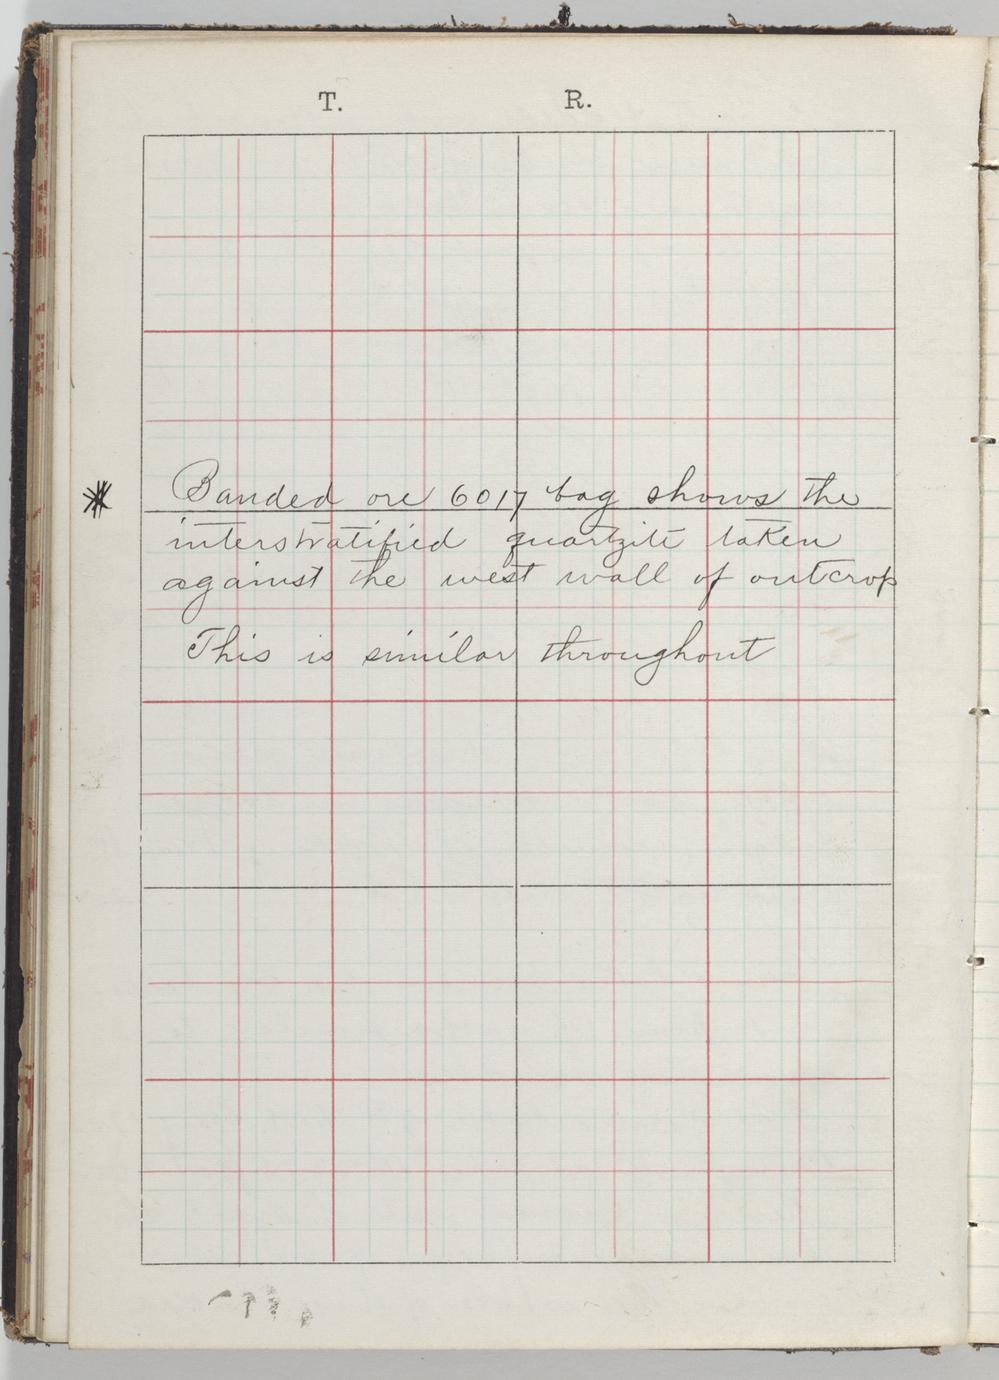 T. R.
* Banded ore 6017 bag shows the
interstratified quartzite taken
against the west wall of outcrop
This is similar throughout